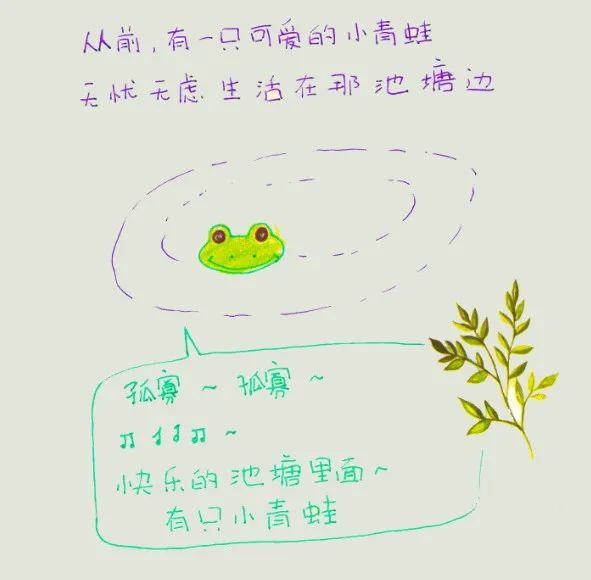 从前,有一只可爱的小青蛙
无忧无虑生活在那池塘边
孤寡~孤寡~
♫♩♩♫~
快乐的池塘里面~
有只小青蛙